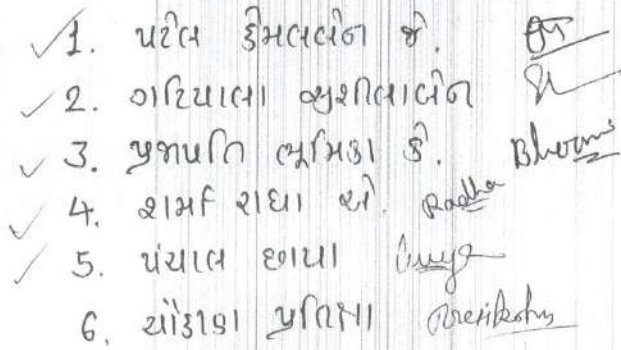 1. પટેલ કોમલબેન જે.
2. ગરિયાલા સુશીલાબેન
3. પ્રજાપતિ ભૂમિકા કે. Bhoomi
4. શર્મા રાધા એ. Radha
5. પંચાલ છાયા
6. ચૌહાણ પ્રતિક્ષા